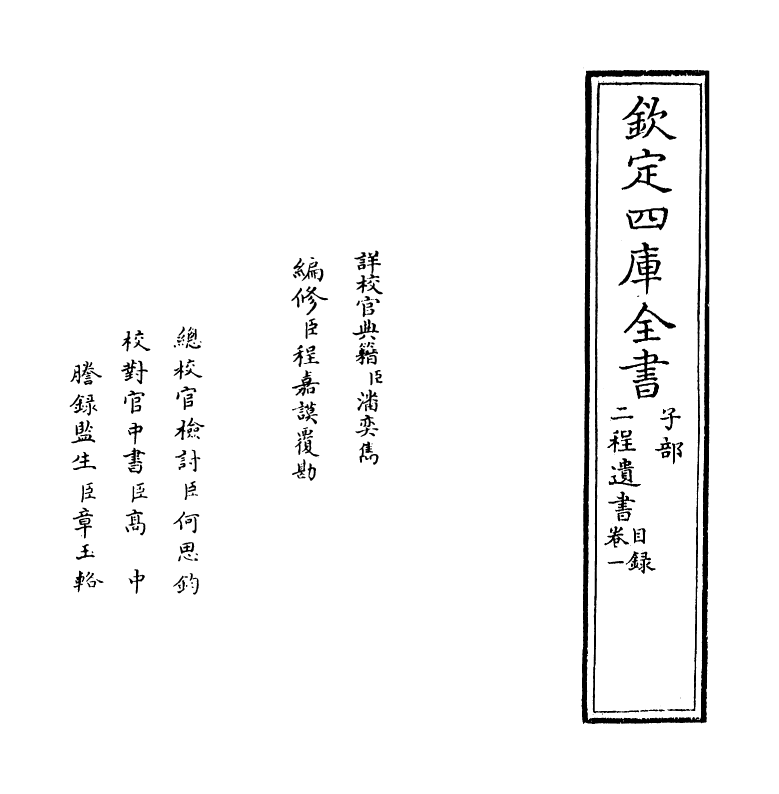 欽定四庫全書
子部
二程遺書
目録
卷一
詳校官典籍臣潘奕雋
編修臣程嘉謨覆勘
總校官檢討臣何思鈞
校對官中書臣髙中
謄録監生臣章玉輅